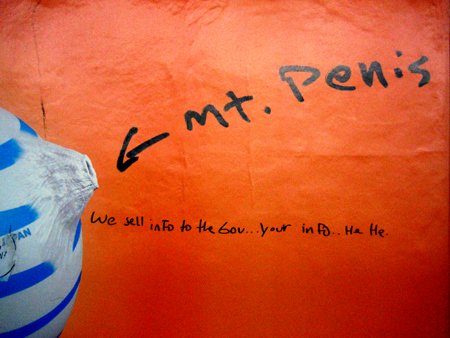 mt. Penis
We sell info to the Gov...your info.. He He.
PAN